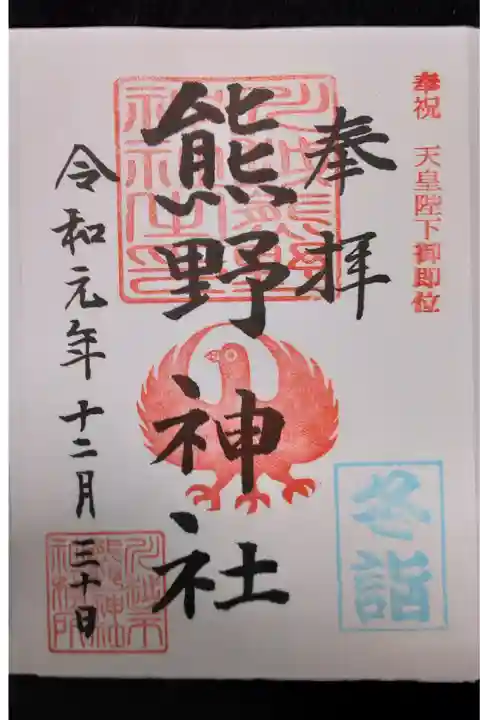 奉祝 天皇陛下御即位
奉拝
熊野神社
令和元年十二月三十日
冬詣